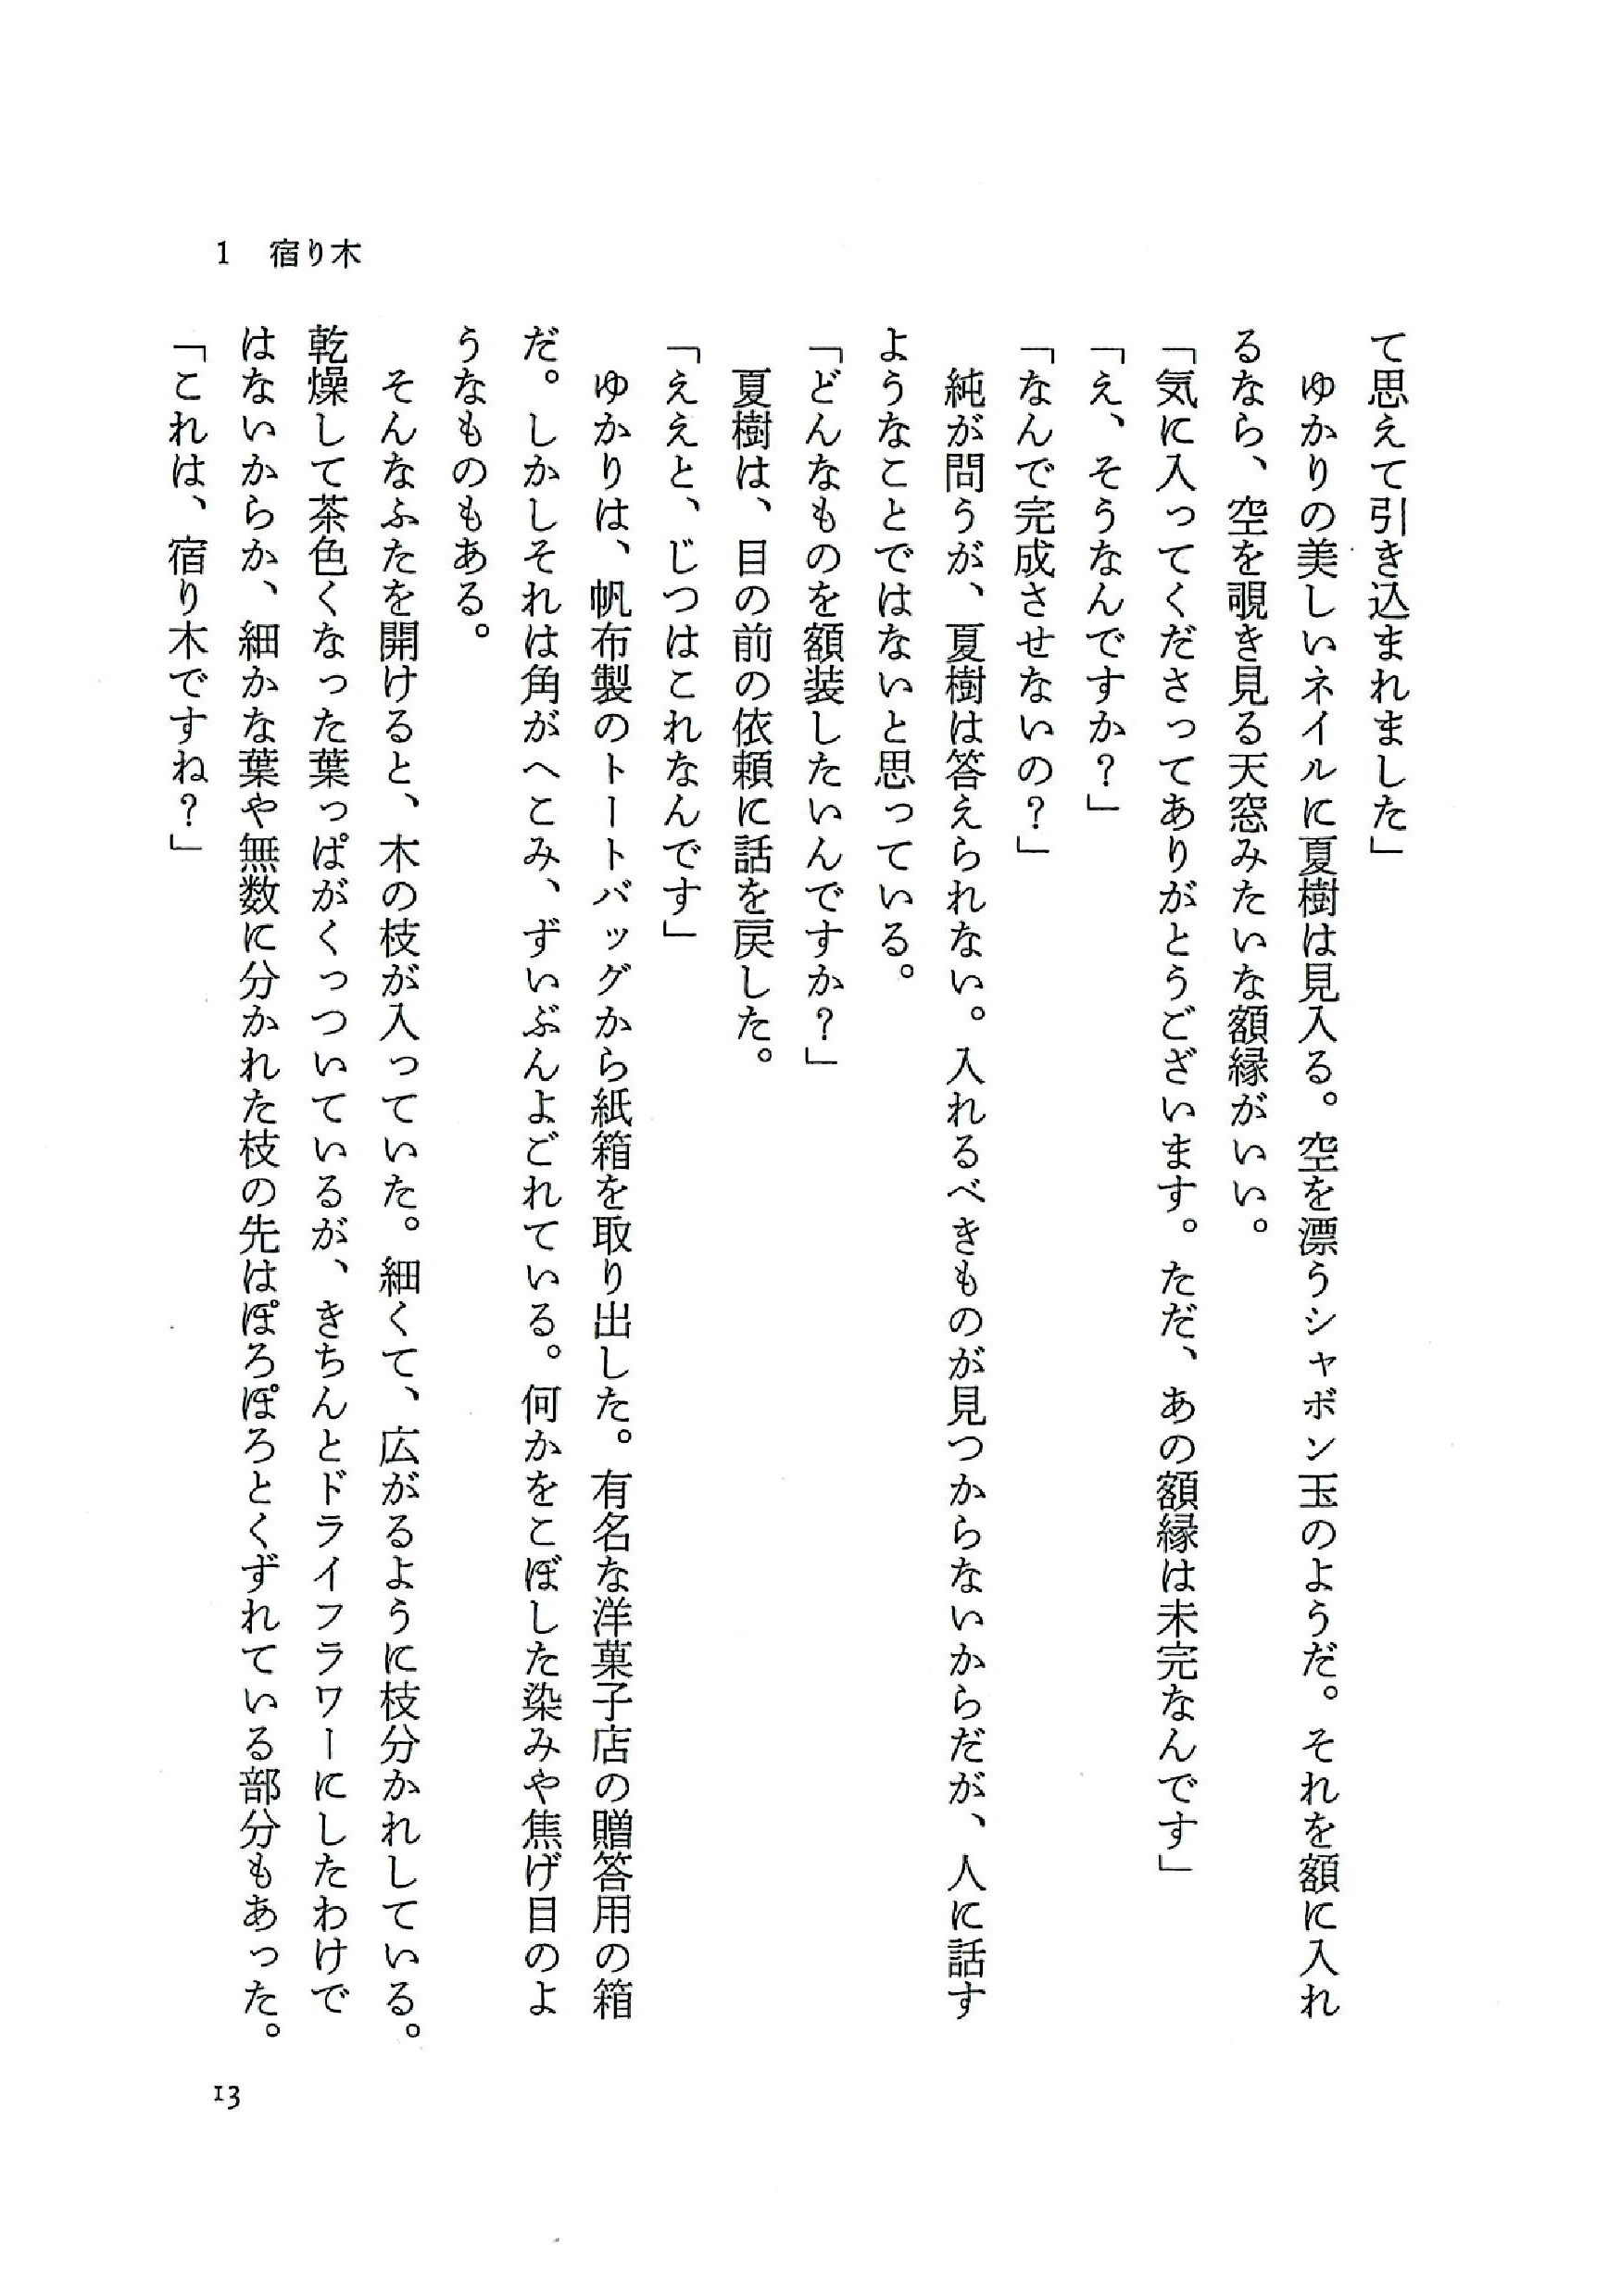 1 宿り木
て思えて引き込まれました」
　ゆかりの美しいネイルに夏樹は見入る。空を漂うシャボン玉のようだ。それを額に入れ
るなら、空を覗き見る天窓みたいな額縁がいい。
「気に入ってくださってありがとうございます。ただ、あの額縁は未完なんです」
「え、そうなんですか？」
「なんで完成させないの？」
　純が問うが、夏樹は答えられない。入れるべきものが見つからないからだが、人に話す
ようなことではないと思っている。
「どんなものを額装したいんですか？」
　夏樹は、目の前の依頼に話を戻した。
「ええと、じつはこれなんです」
　ゆかりは、帆布製のトートバッグから紙箱を取り出した。有名な洋菓子店の贈答用の箱
だ。しかしそれは角がへこみ、ずいぶんよごれている。何かをこぼした染みや焦げ目のよ
うなものもある。
　そんなふたを開けると、木の枝が入っていた。細くて、広がるように枝分かれしている。
乾燥して茶色くなった葉っぱがくっついているが、きちんとドライフラワーにしたわけで
はないからか、細かな葉や無数に分かれた枝の先はぽろぽろとくずれている部分もあった。
「これは、宿り木ですね？」
13